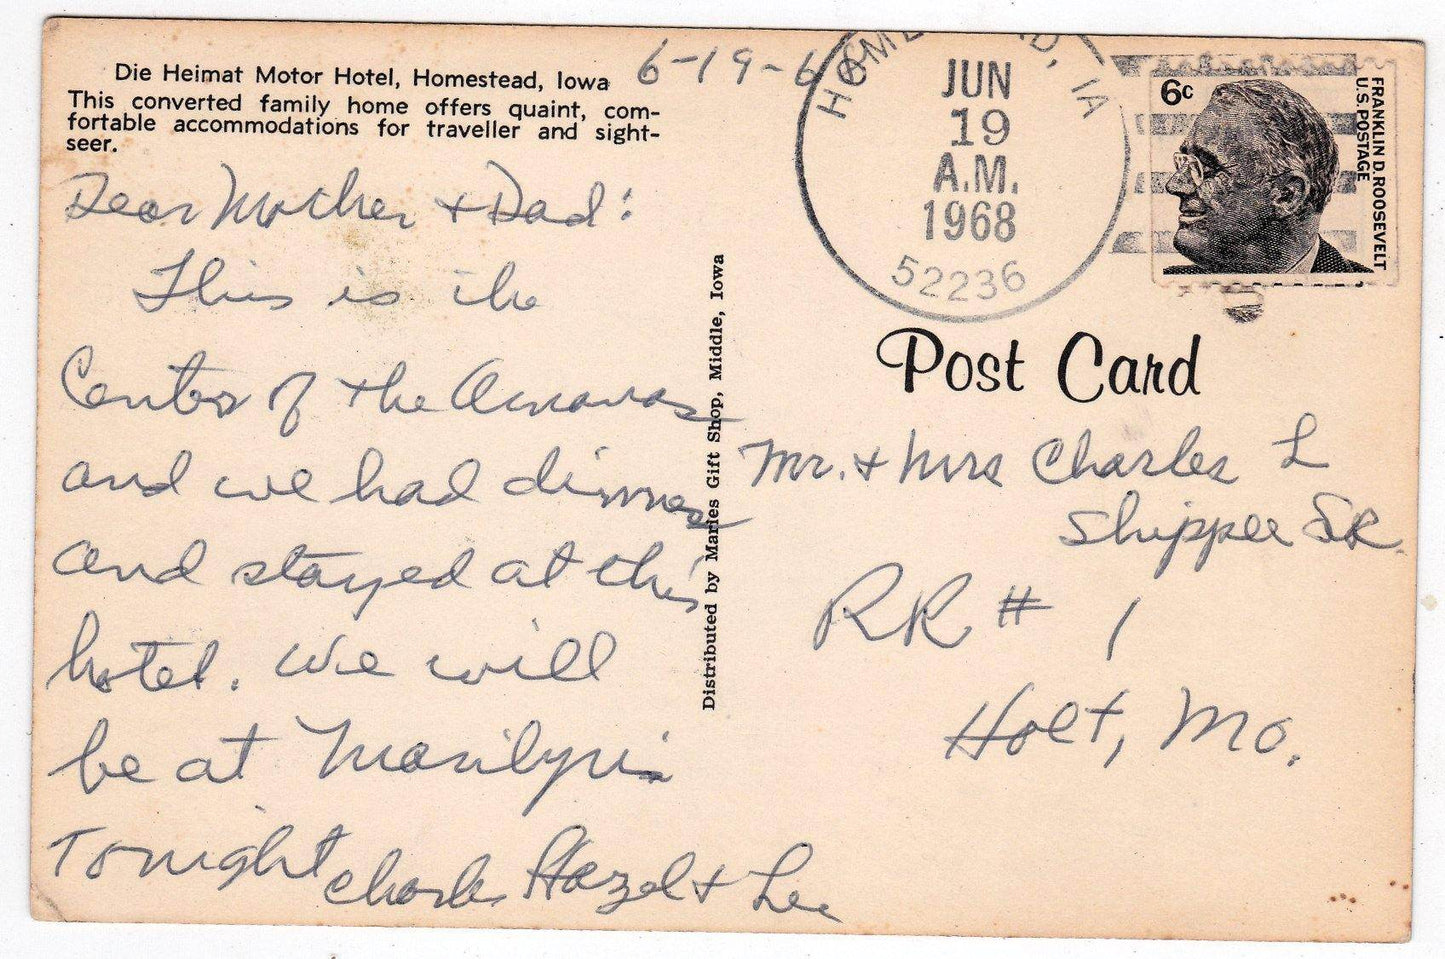 Die Heimat Motor Hotel, Homestead, Iowa
This converted family home offers quaint, com-
fortable accommodations for traveller and sight-
seer.
6-19-68
Dear Mother & Dad:
This is the
Center of the Amanas
and we had dinner
and stayed at this
hotel. We will
be at Marilyn's
Tonight
Charles Hazel & Lee
Distributed by Maries Gift Shop, Middle, Iowa
HOMESTEAD, IA
JUN
19
A.M.
1968
52236
6c
FRANKLIN D. ROOSEVELT
U.S. POSTAGE
Post Card
Mr. & Mrs Charles L
Shippee SR.
RR # 1
Holt, Mo.